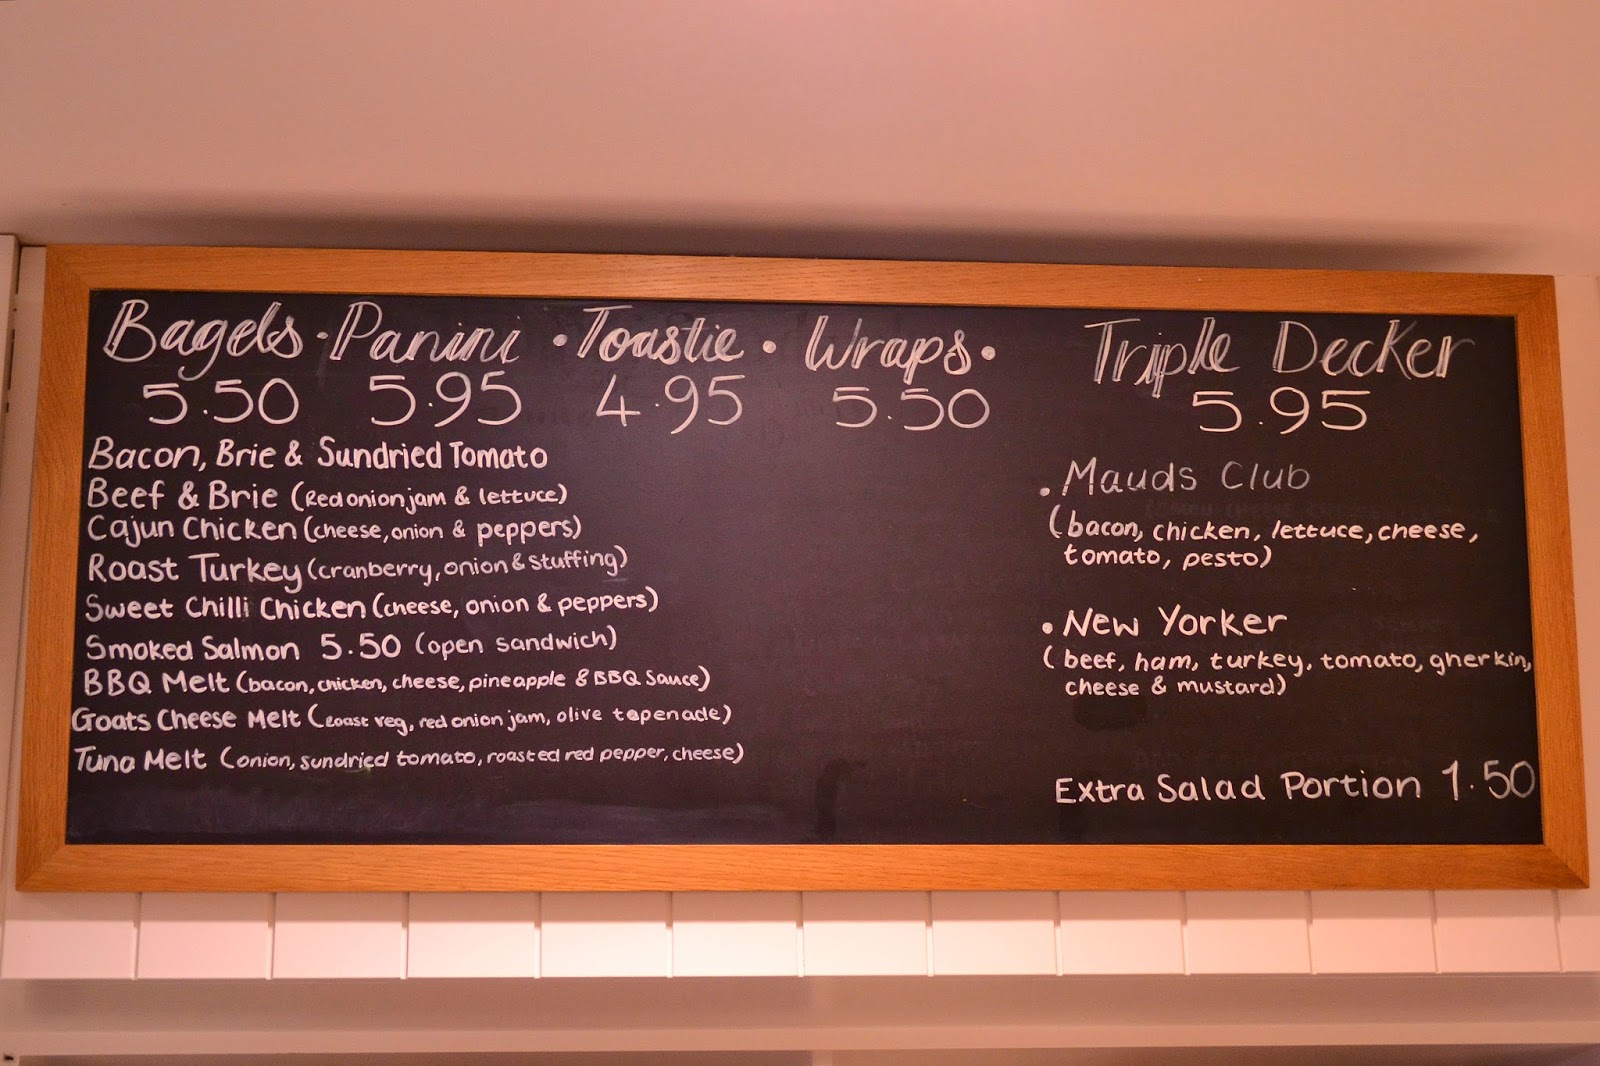 Bagels · Panini · Toastie · Wraps ·
5.50 5.95 4.95 5.50
Bacon, Brie & Sundried Tomato
Beef & Brie (Red onion jam & lettuce)
Cajun Chicken (cheese, onion & peppers)
Roast Turkey (cranberry, onion & stuffing)
Sweet Chilli Chicken (cheese, onion & peppers)
Smoked Salmon 5.50 (open sandwich)
BBQ Melt (bacon, chicken, cheese, pineapple & BBQ Sauce)
Goats Cheese Melt (roast veg, red onion jam, olive tapenade)
Tuna Melt (onion, sundried tomato, roasted red pepper, cheese)
Triple Decker
5.95
· Mauds Club
(bacon, chicken, lettuce, cheese,
tomato, pesto)
· New Yorker
(beef, ham, turkey, tomato, gherkin,
cheese & mustard)
Extra Salad Portion 1.50